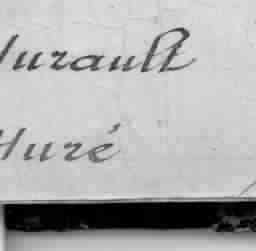 Hurault
Huré